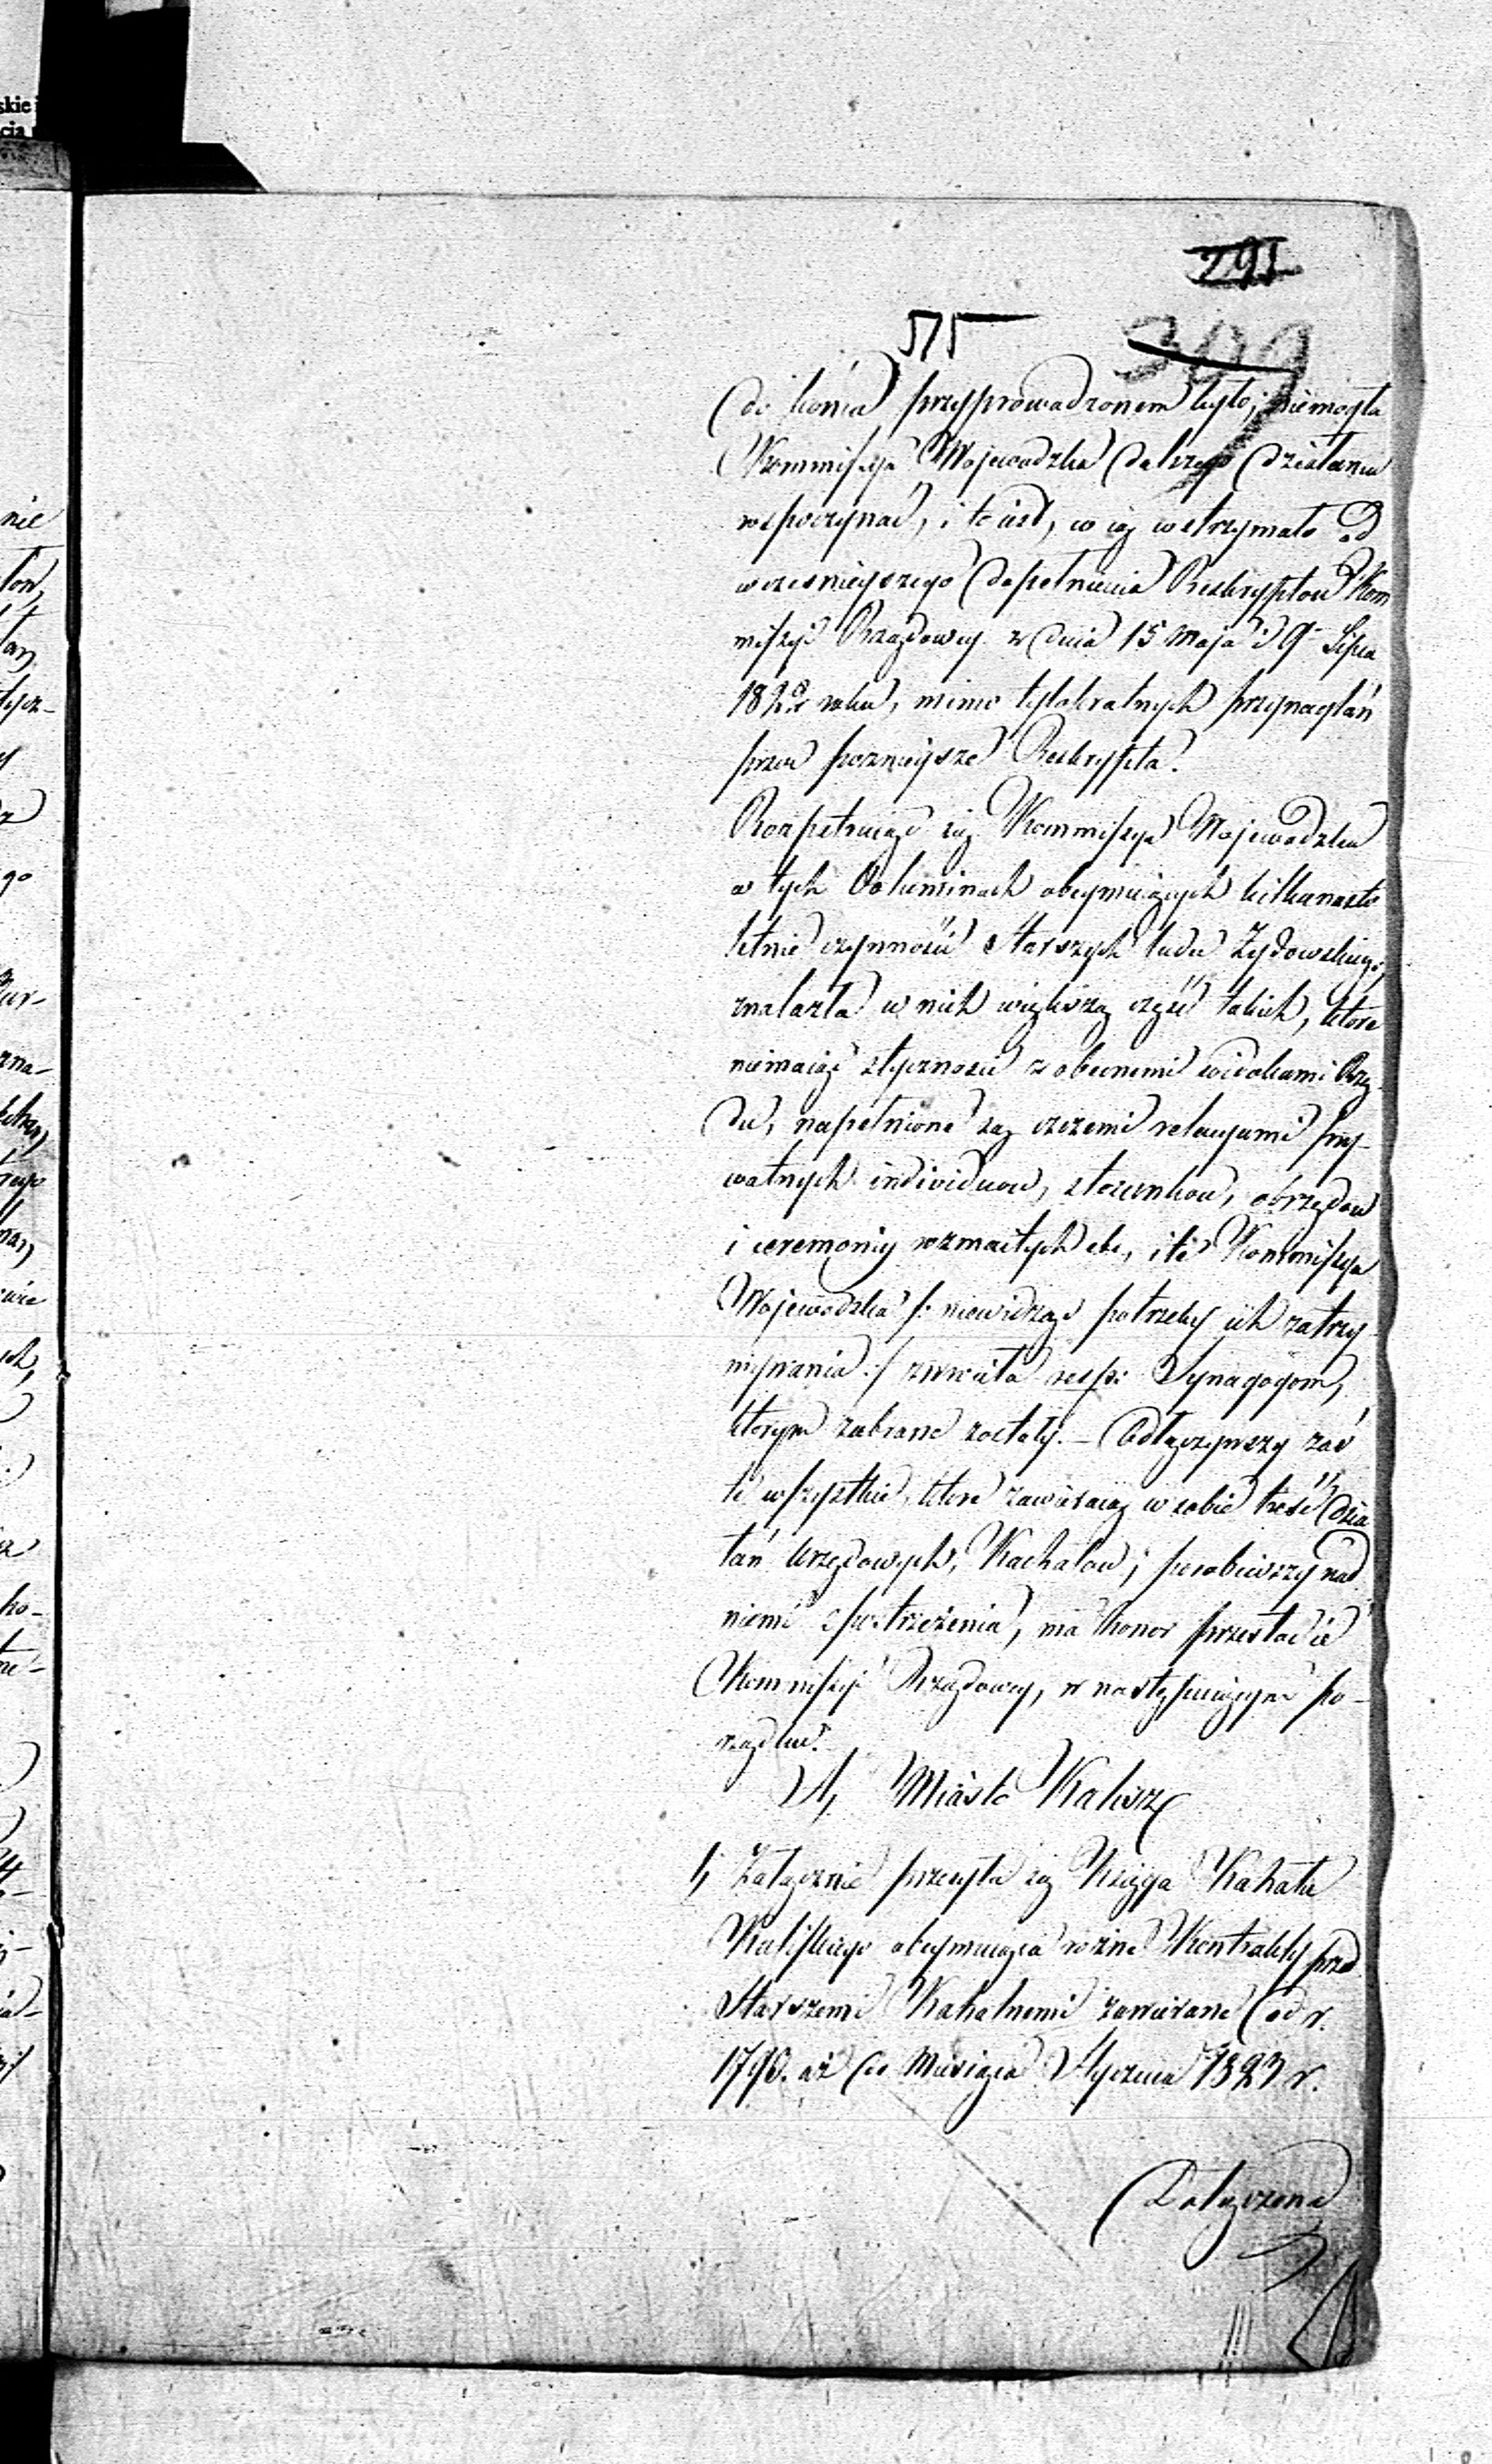 skie i
cia
291
515
399
do końca przyprowadzonem było, niemogła
Kommissya Woiewodzka dalszego działania
rospoczynać, i to iest, co ią wstrzymało od
wczesnieyszego dopełnienia Reskryptow Kom
missyi Rządowey z dnia 15 Maja i 9 Lipca
1822 roku, mimo tylokratnych przynagłań
przez poznieysze Reskrypta.
Rozpatruiąc się Kommissya Woiewodzka
w tych Voluminach obeymuiących kilkanasto
letnie czynności Starszych ludu Żydowskiego,
znalazła w nich większą część takich, ktore
niemaiąc styczności z obecnemi widokami Rzą
du, napełnione są czczemi relacyami pry-
watnych individuow, stosunkow, obrzędow
i ceremoniy rozmaitych etc, i te Kommissya
Woiewodzka /: niewidząc potrzeby ich zatrzy
mywania :/ zwrociła resp: Synagogom,
ktorym zabrane zostały. – Odłączywszy zaś
te wszystkie, ktore zawieraią w sobie treść dzia
łań Urzędowych, Kachałow; porobiwszy nad
niemi spostrzeżenia, ma honor przesłać ie
Kommissyi Rządowey, w następuiącym po-
rządku.
A, Miasto Kalisz
1, Załącznie przesyła się Księga Kahału
Kaliskiego obeymuiąca rożne Kontrakty przed
Starszemi Kahalnemi zawierane od r.
1790. aż do Miesiąca Stycznia 1823 r.
Dołączona